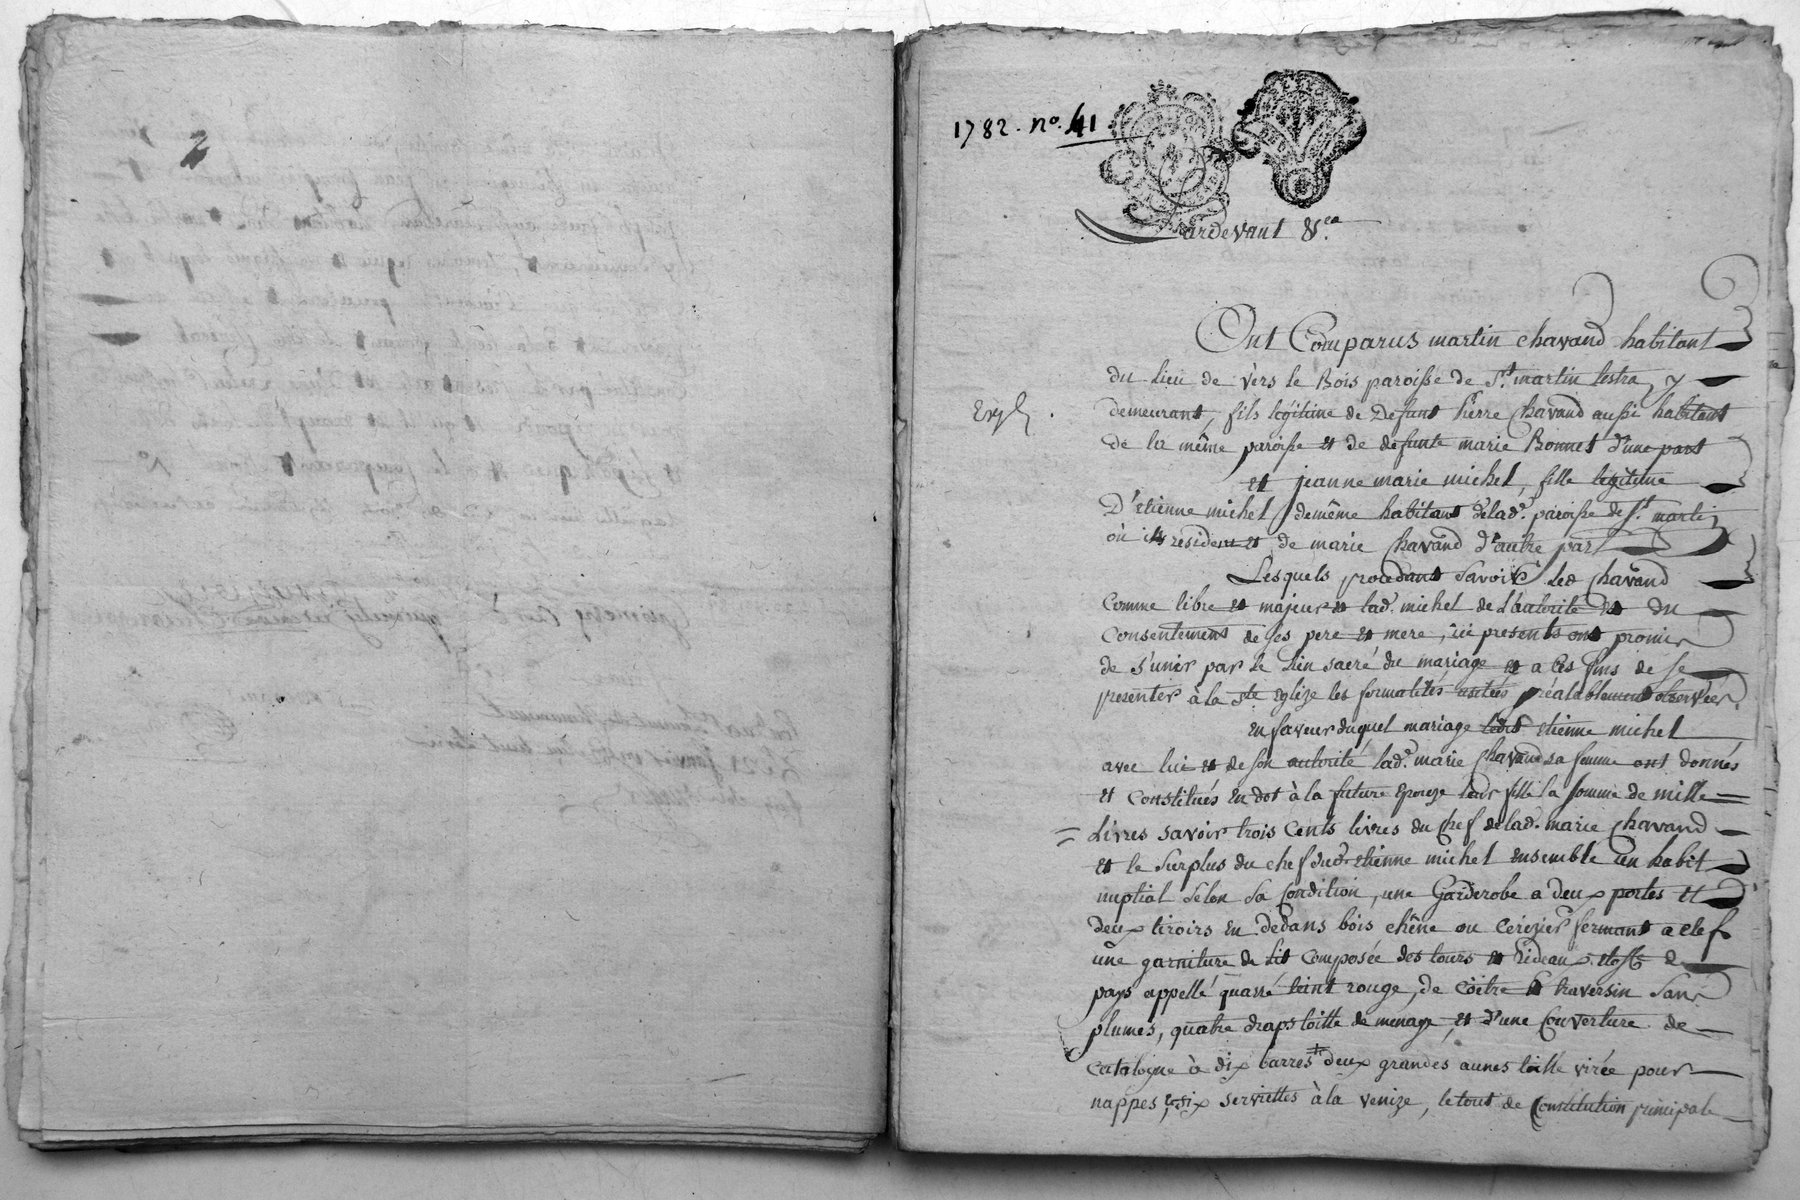 2
1782. no. 41
Pardevant &.ra
Ont Comparus martin chavand habitant
du Lieu de vers le Bois paroisse de St. martin lestra y
Exp.
demeurant, fils legitime de Defunt Pierre Chavand aussi habitant
de la même paroisse et de defunte marie Bonnet d'une part
et jeanne marie michel, fille legitime
D'etienne michel demême habitant delad. paroisse de St. martin
où ils resident et de marie Chavand d'autre part
Lesquels procedant Savoir led Chavand
comme libre et majeur et lad. michel de L'autorité et du
consentement de ses pere et mere, ici presents ont promis
de s'unir par le Lien sacré du mariage et a ces fins de se
presenter à la Ste Eglize les formalités usitées préalablement observées.
En faveur duquel mariage ledit etienne michel
avec lui et de son autorité lad. marie Chavand sa femme ont donnés
et constitués En dot à la future Epouze leur fille la somme de mille
Livres savoir trois Cents livres du Chef delad. marie Chavand
et le Surplus du chef dud. etienne michel ensemble un habit
nuptial selon sa Condition, une Garderobe a deux portes et
deux tiroirs en dedans bois chêne ou cerizier fermant a clef
une garniture de Lit composée des tours et Rideaux etoffe de
pays appellé quarré teint rouge, de coitre et traversin sans
plumes, quatre draps toille de menage, et d'une Couverture de
catalogne à dix barres # deux grandes aunes toille virée pour
nappes, et six serviettes à la venize, le tout de Constitution principale